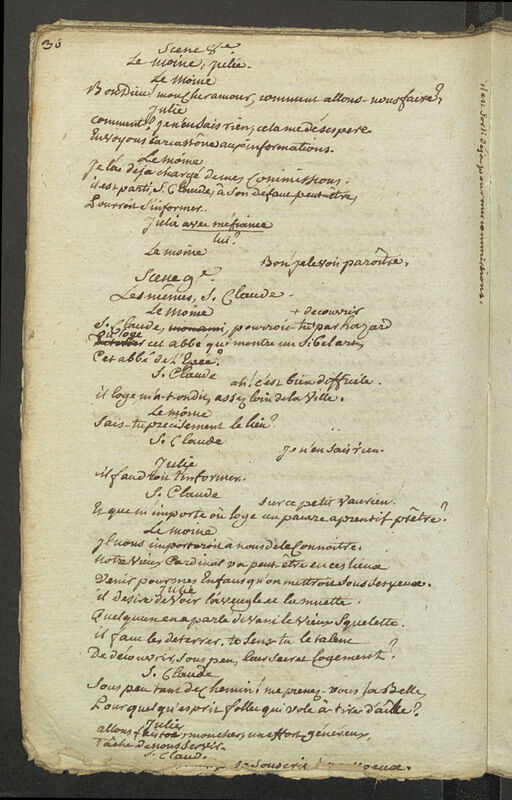 30
Scene 8e
Le moine, julie.
Le Moine
Bon Dieu! mon cher amour, comment allons-nous faire?
Julie
comment? je n'en sais rien; cela me désespere.
Envoyons aux informations.
Le moine
je l'ai deja chargé de mes Commissions.
il est parti, S. Claude, à son défaut peut-être,
Pourroit s'informer.
Julie avec méfiance
lui?
Le moine
Bon! je le vois paroître.
Scene 9e.
Les mêmes, S. Claude.
Le moine
+ decouvrir
S. Claude, mon ami, pourrois-tu par hazard
où loge
cet abbé qui montre un si bel art,
Cet abbé de L'Epée?
S. Claude
ah! c'est bien difficile.
il loge m'a-t-on dit, assez loin de la Ville.
Le moine
Sais-tu précisement le lieu?
S. Claude
Je n'en sais rien.
Julie
il faudroit t'informer.
S. Claude
sur ce petit vaurien.
Et que m'importe où loge un pauvre aprentif prêtre?
Le moine
Il nous importeroit à nous de le Connoitre.
Notre vieux Cardinal va peut être en ces lieux
Venir pour mes Enfans qu'on mettroit sous ses yeux.
Julie
il desire de voir l'aveugle et la muette.
Quelqu'un en a parlé devant le vieux Squelette.
il faut les deterrer. te sens-tu le talent
De découvrir, sous peu, leur secret Logement?
S. Claude
Sous peu tant de Chemin! me prenez-vous, ma Belle,
Pour quelqu'esprit follet qui vole à tire d'aîle?
Julie
allons mon cher, un effort généreux,
Tâche de nous servir.
S. Claude
il en a déja pour mes commissions.